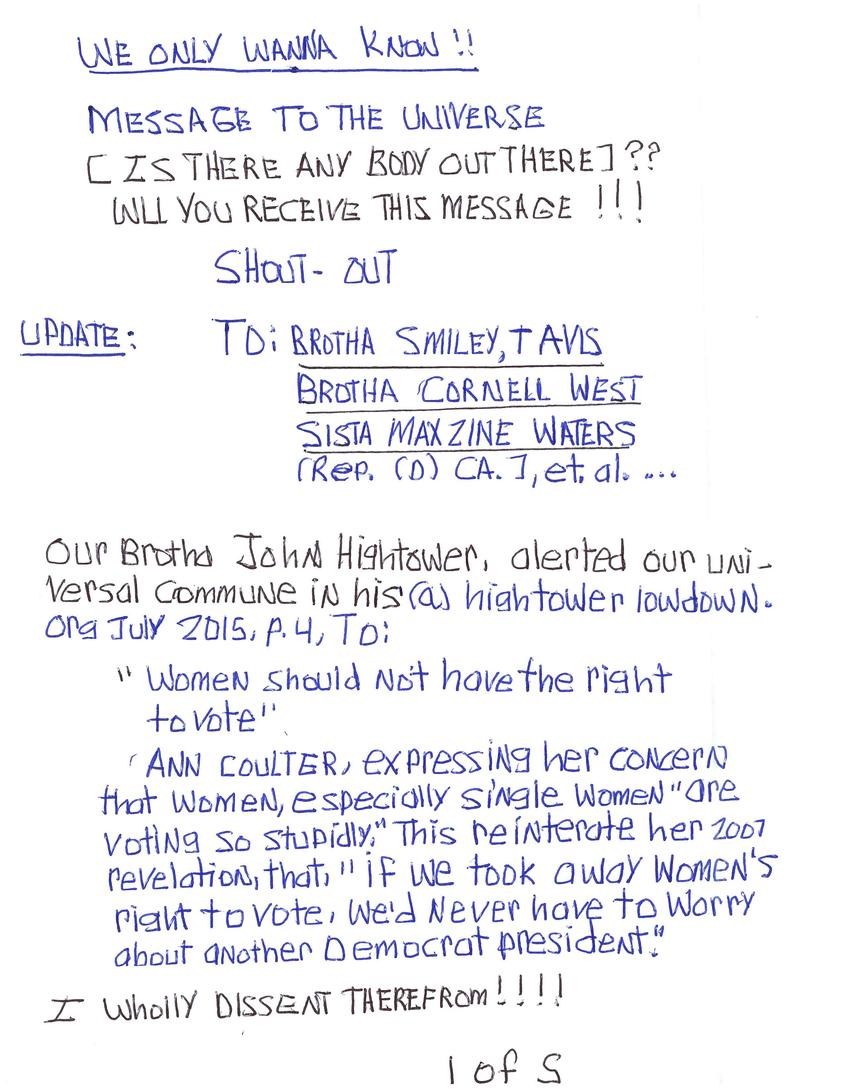 WE ONLY WANNA KNOW!!
MESSAGE TO THE UNIVERSE
[IS THERE ANY BODY OUT THERE]??
WILL YOU RECEIVE THIS MESSAGE !!!
SHOUT-OUT
UPDATE: TO: BROTHA SMILEY, TAVIS
BROTHA CORNELL WEST
SISTA MAXZINE WATERS
(Rep. (D) CA.], et. al. ....
Our Brotha John Hightower, alerted our uni-
versal commune in his (a) hightower lowdown.
org July 2015, p.4, To:
"Women should not have the right
to vote"
'ANN COULTER, expressing her concern
that women, especially single women "are
voting so stupidly." This reinterate her 2007
revelation, that, "if we took away women's
right to vote, we'd never have to worry
about another Democrat president."
I Wholly DISSENT THEREFROM!!!!
1 of 5